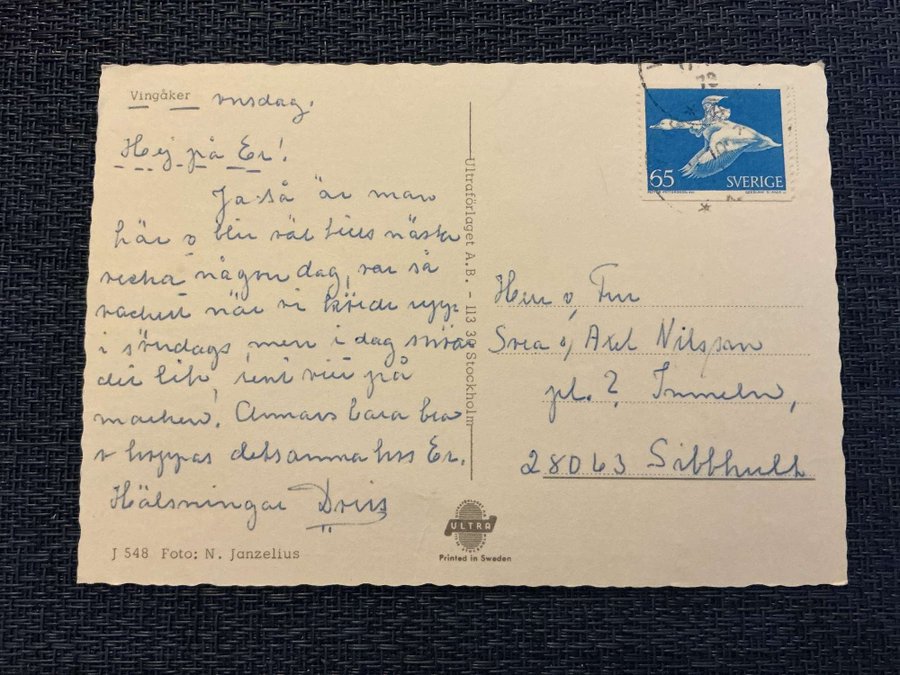 Vingåker onsdag.
Hej på Er!
Ja så är man
här o blir väl hela nästa
vecka någon dag, var så
vackert när vi körde upp
i söndags, men i dag snöar
det lite, rent vitt på
marken. Annars bara bra
o hoppas detsamma hos Er.
Hälsningar Doris
J 548 Foto: N. Janzelius
Ultraförlaget A.B. - 113 30 Stockholm
ULTRA
Printed in Sweden
65 SVERIGE
Herr o, Fru
Svea o, Axel Nilsson
pl. 2 Immeln,
28063 Sibbhult